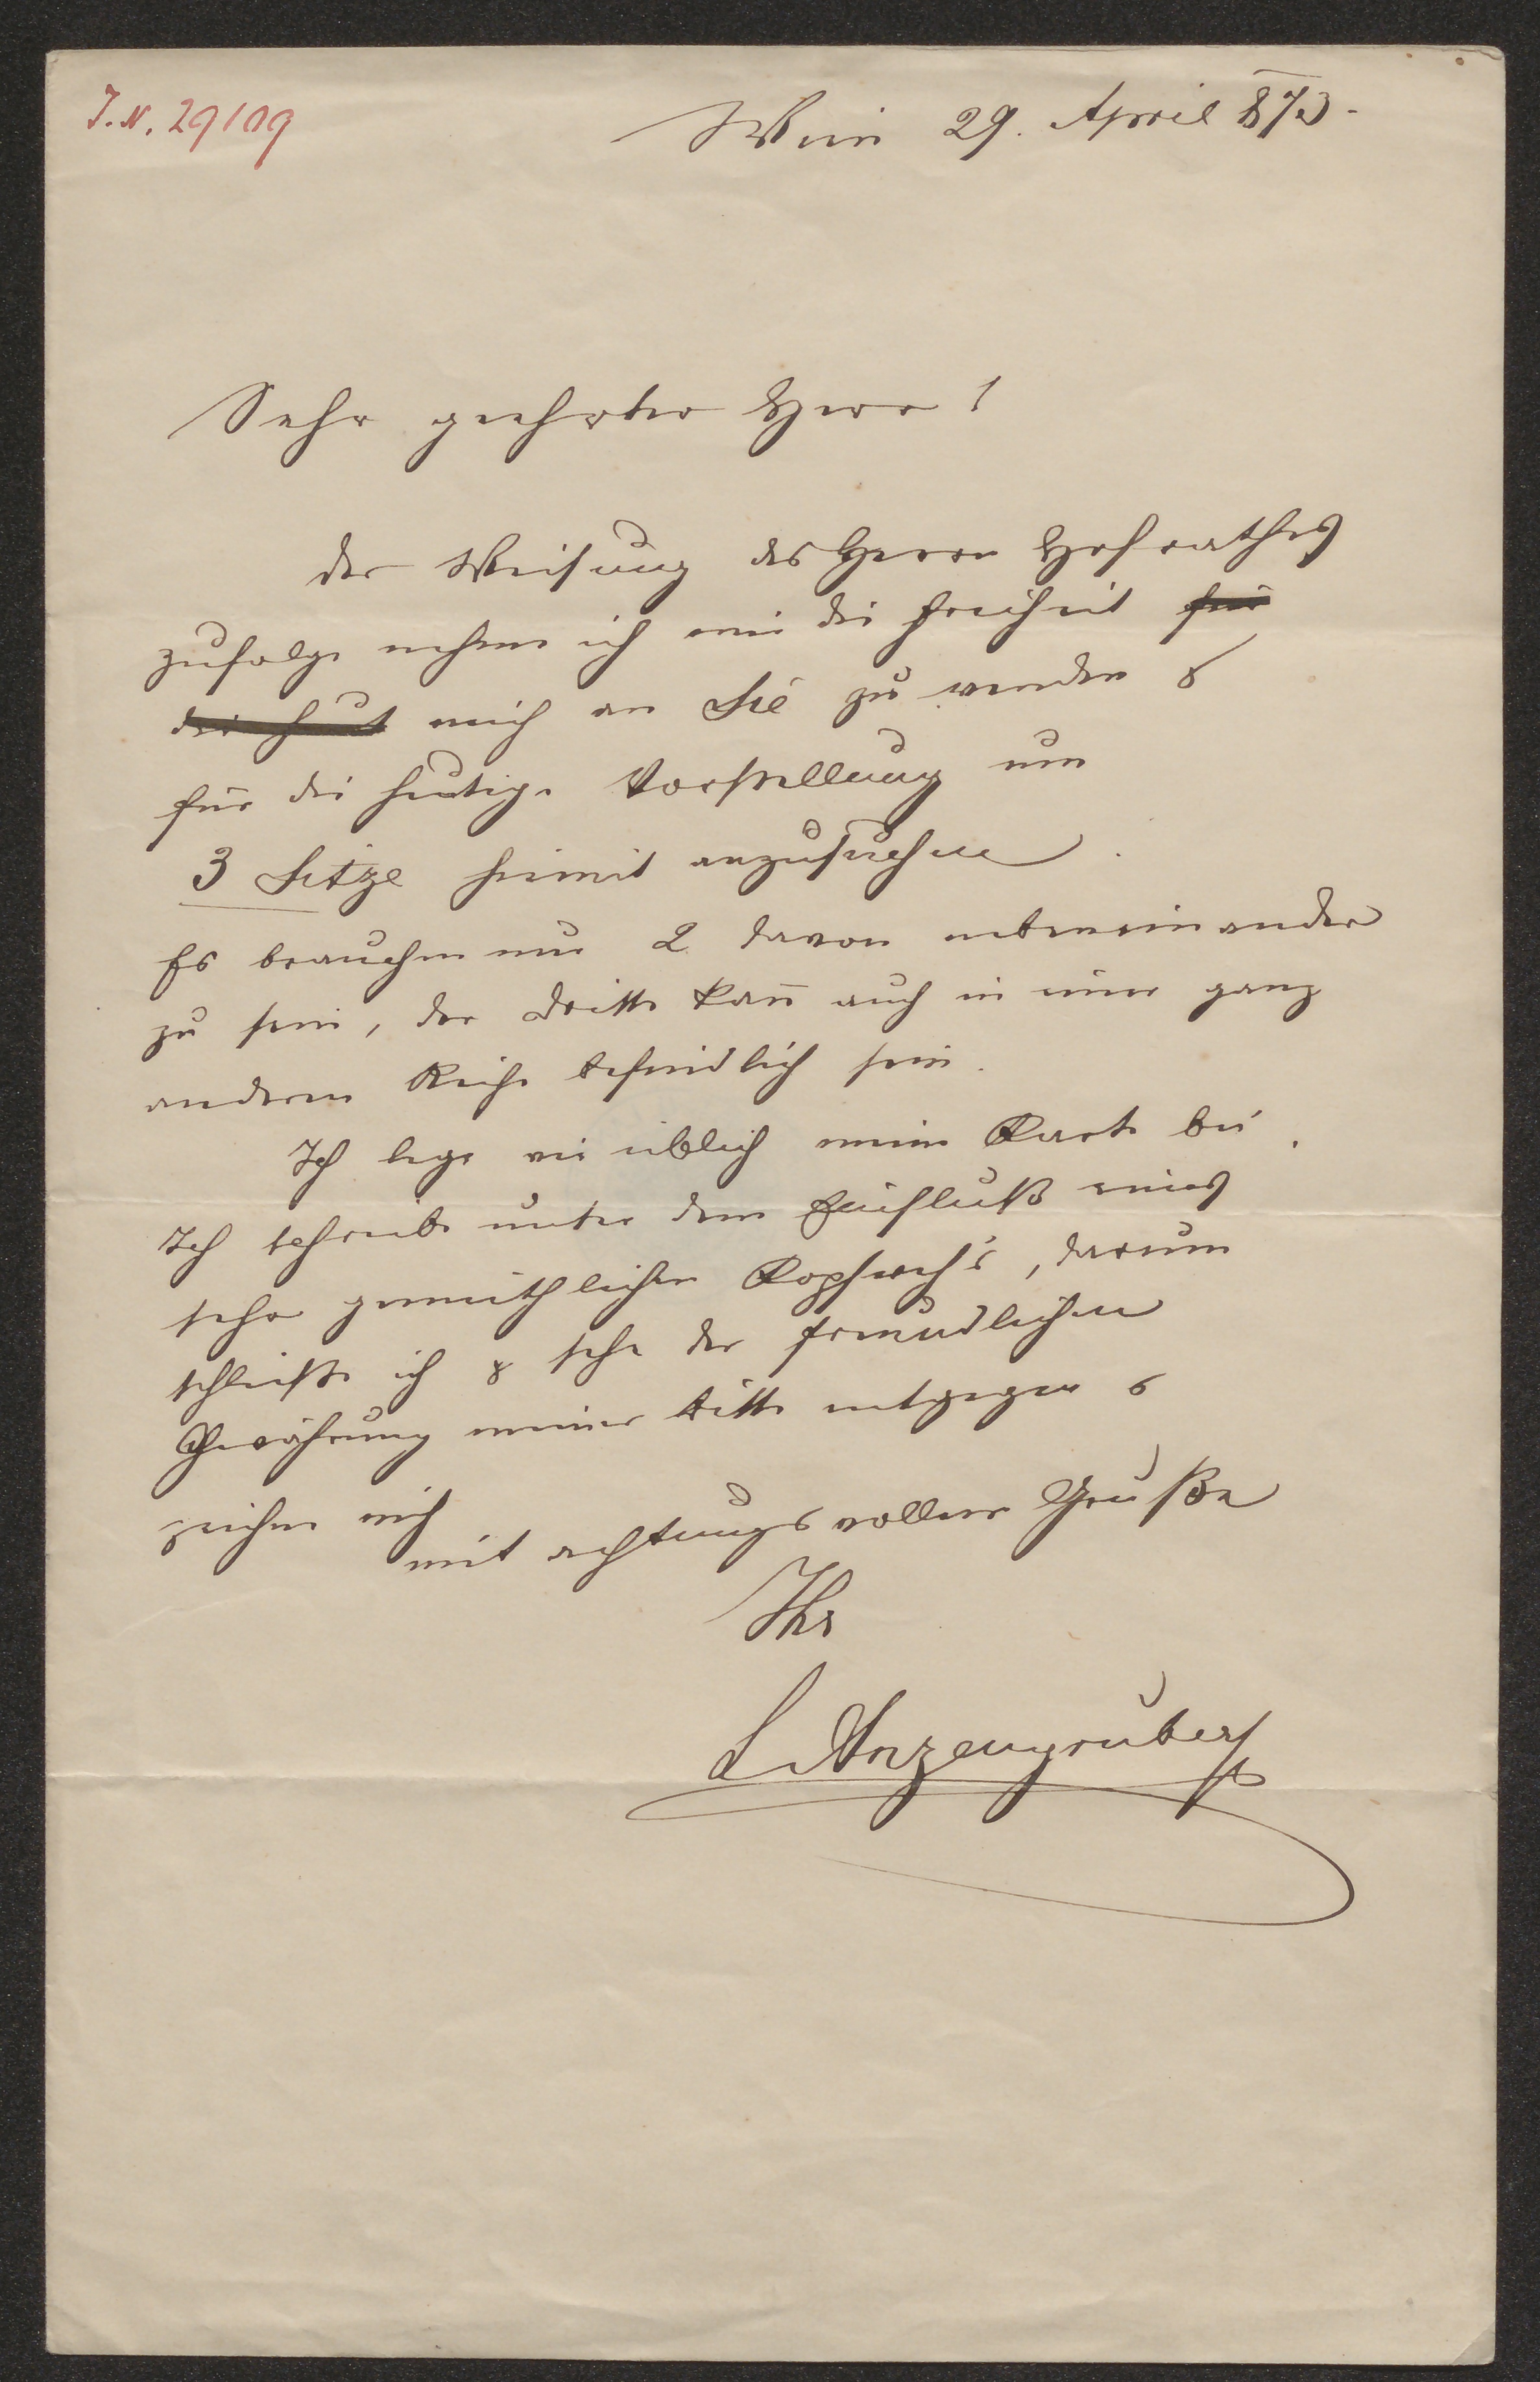 I. N. 29109
Wien 29. April 873.
Sehr geehrter Herr!
Der Weisung des Herrn Hofrathes
zufolge nehme ich mir die Freiheit für
die heut mich an Sie zu wenden &
für die heutige Vorstellung um
3 Sitze hiemit anzusuchen.
Es brauchen nur 2 davon nebeneinander
zu sein, der dritte kañ auch in einer ganz
anderen Reihe befindlich sein.
Ich lege wie üblich meine Karte bei.
Ich schreibe unter dem Einfluß eines
sehr gemüthlichen Kopfweh's, darum
schließe ich & sehe der freundlichen
Gewährung meiner Bitte entgegen &
zeichne mich
mit achtungsvollem Gruße
Ihr
L Anzengruber